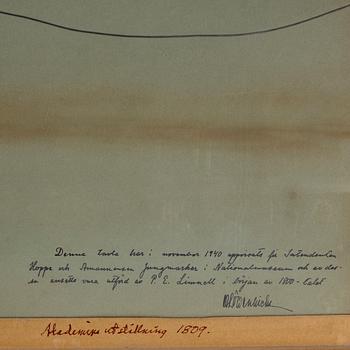 Denna tavla har i november 1940 uppvisats för Intendenten
Hoppe och Amanuensen Jungmarker i Nationalmuseum och av des-
sa ansetts vara utförd av P. E. Limnell i början av 1800-talet
Akademiens utställning 1809.